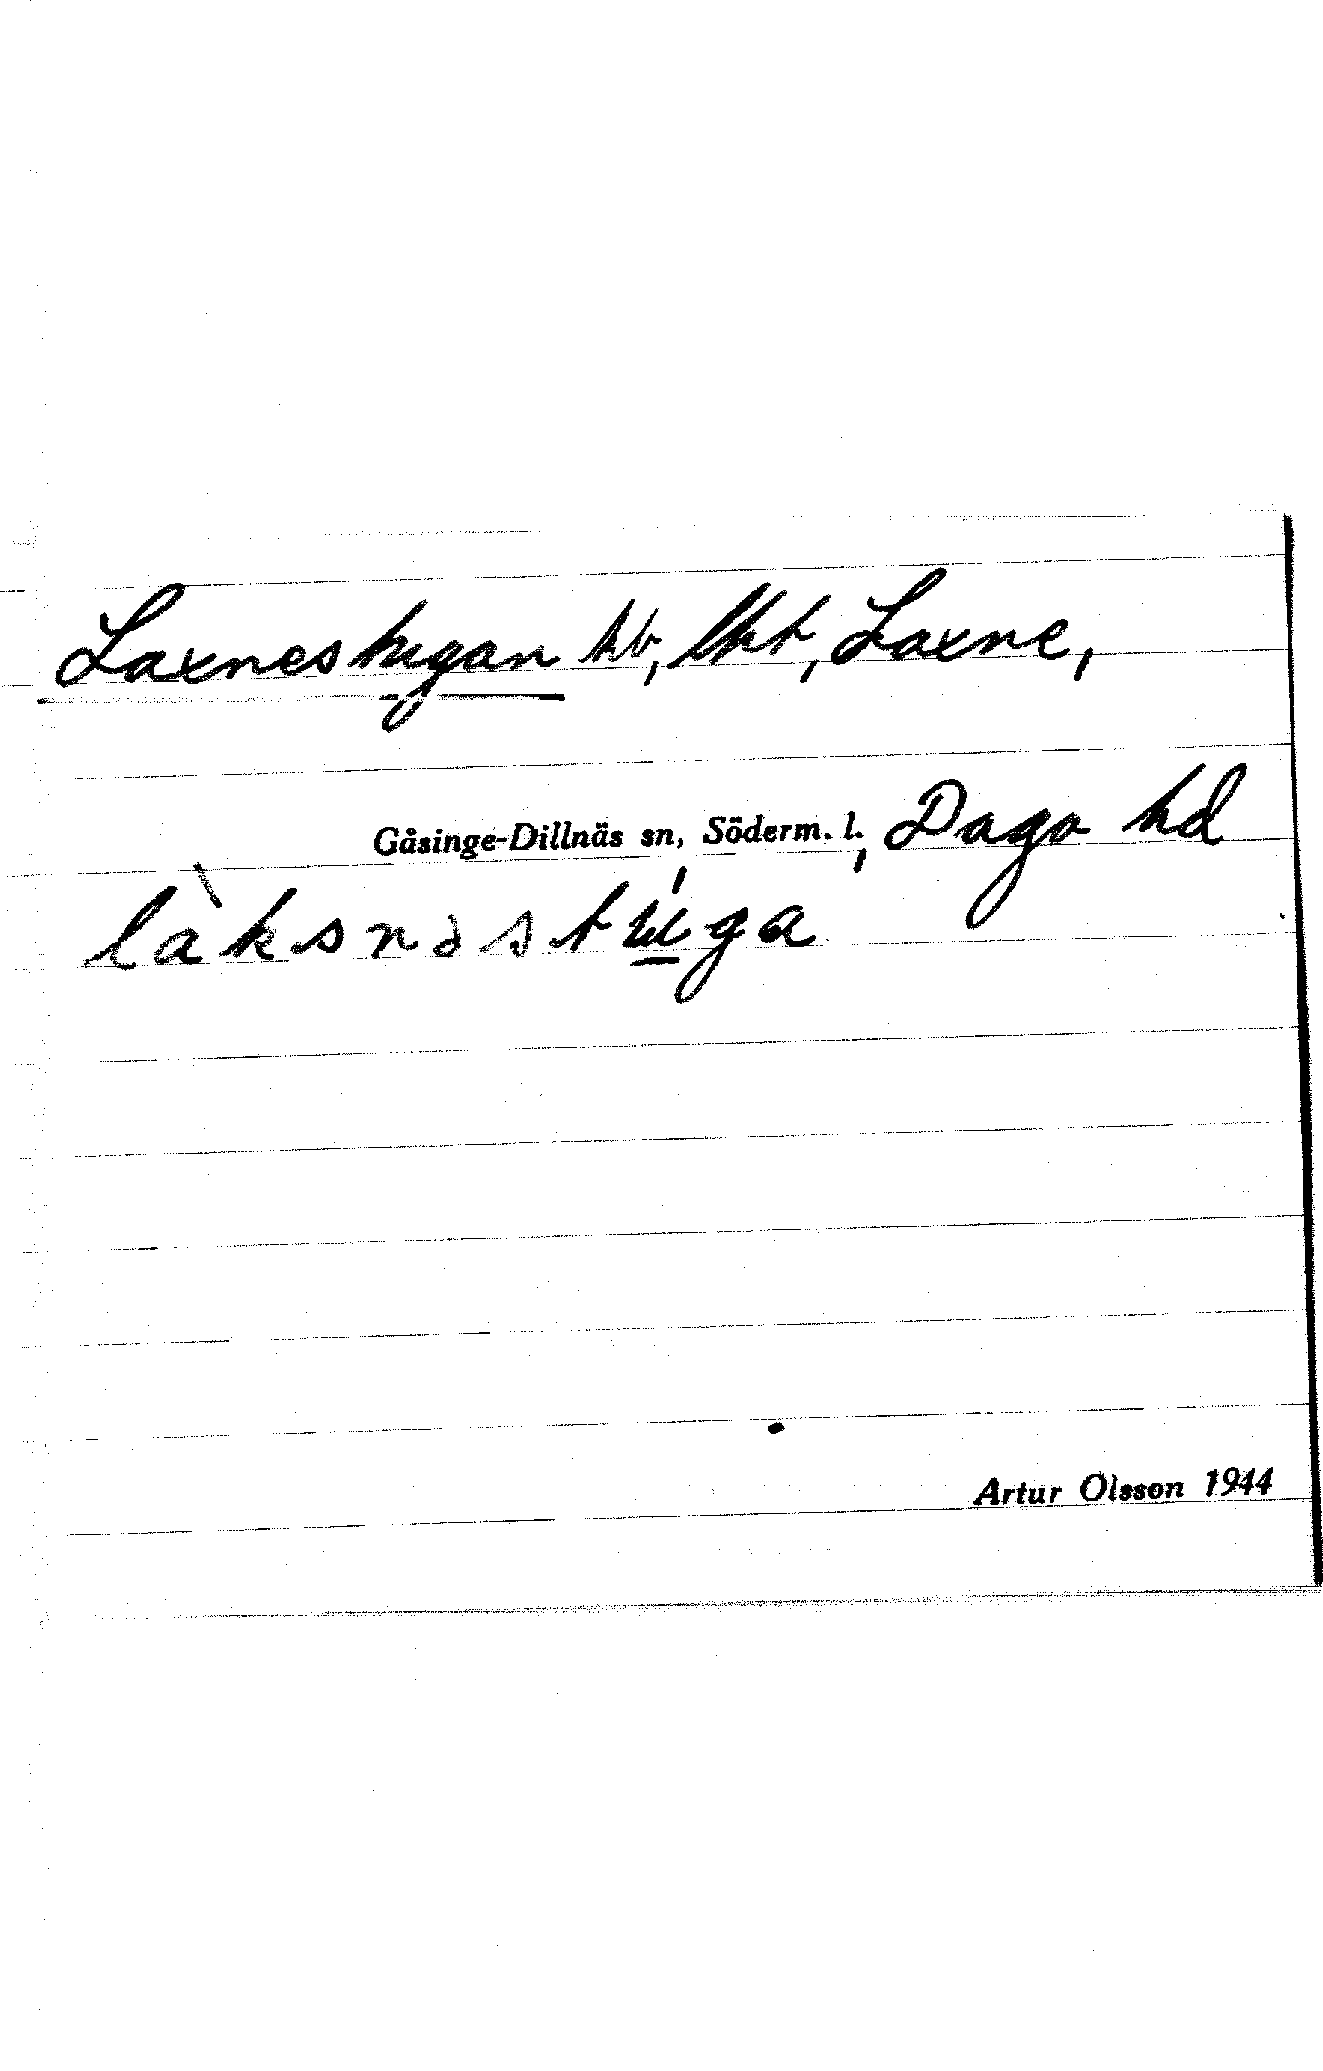 Laxnestugan hb, lht, Laxne,
Gåsinge-Dillnäs sn, Söderm. l., Daga hd
làksnəstúga
Artur Olsson 1944